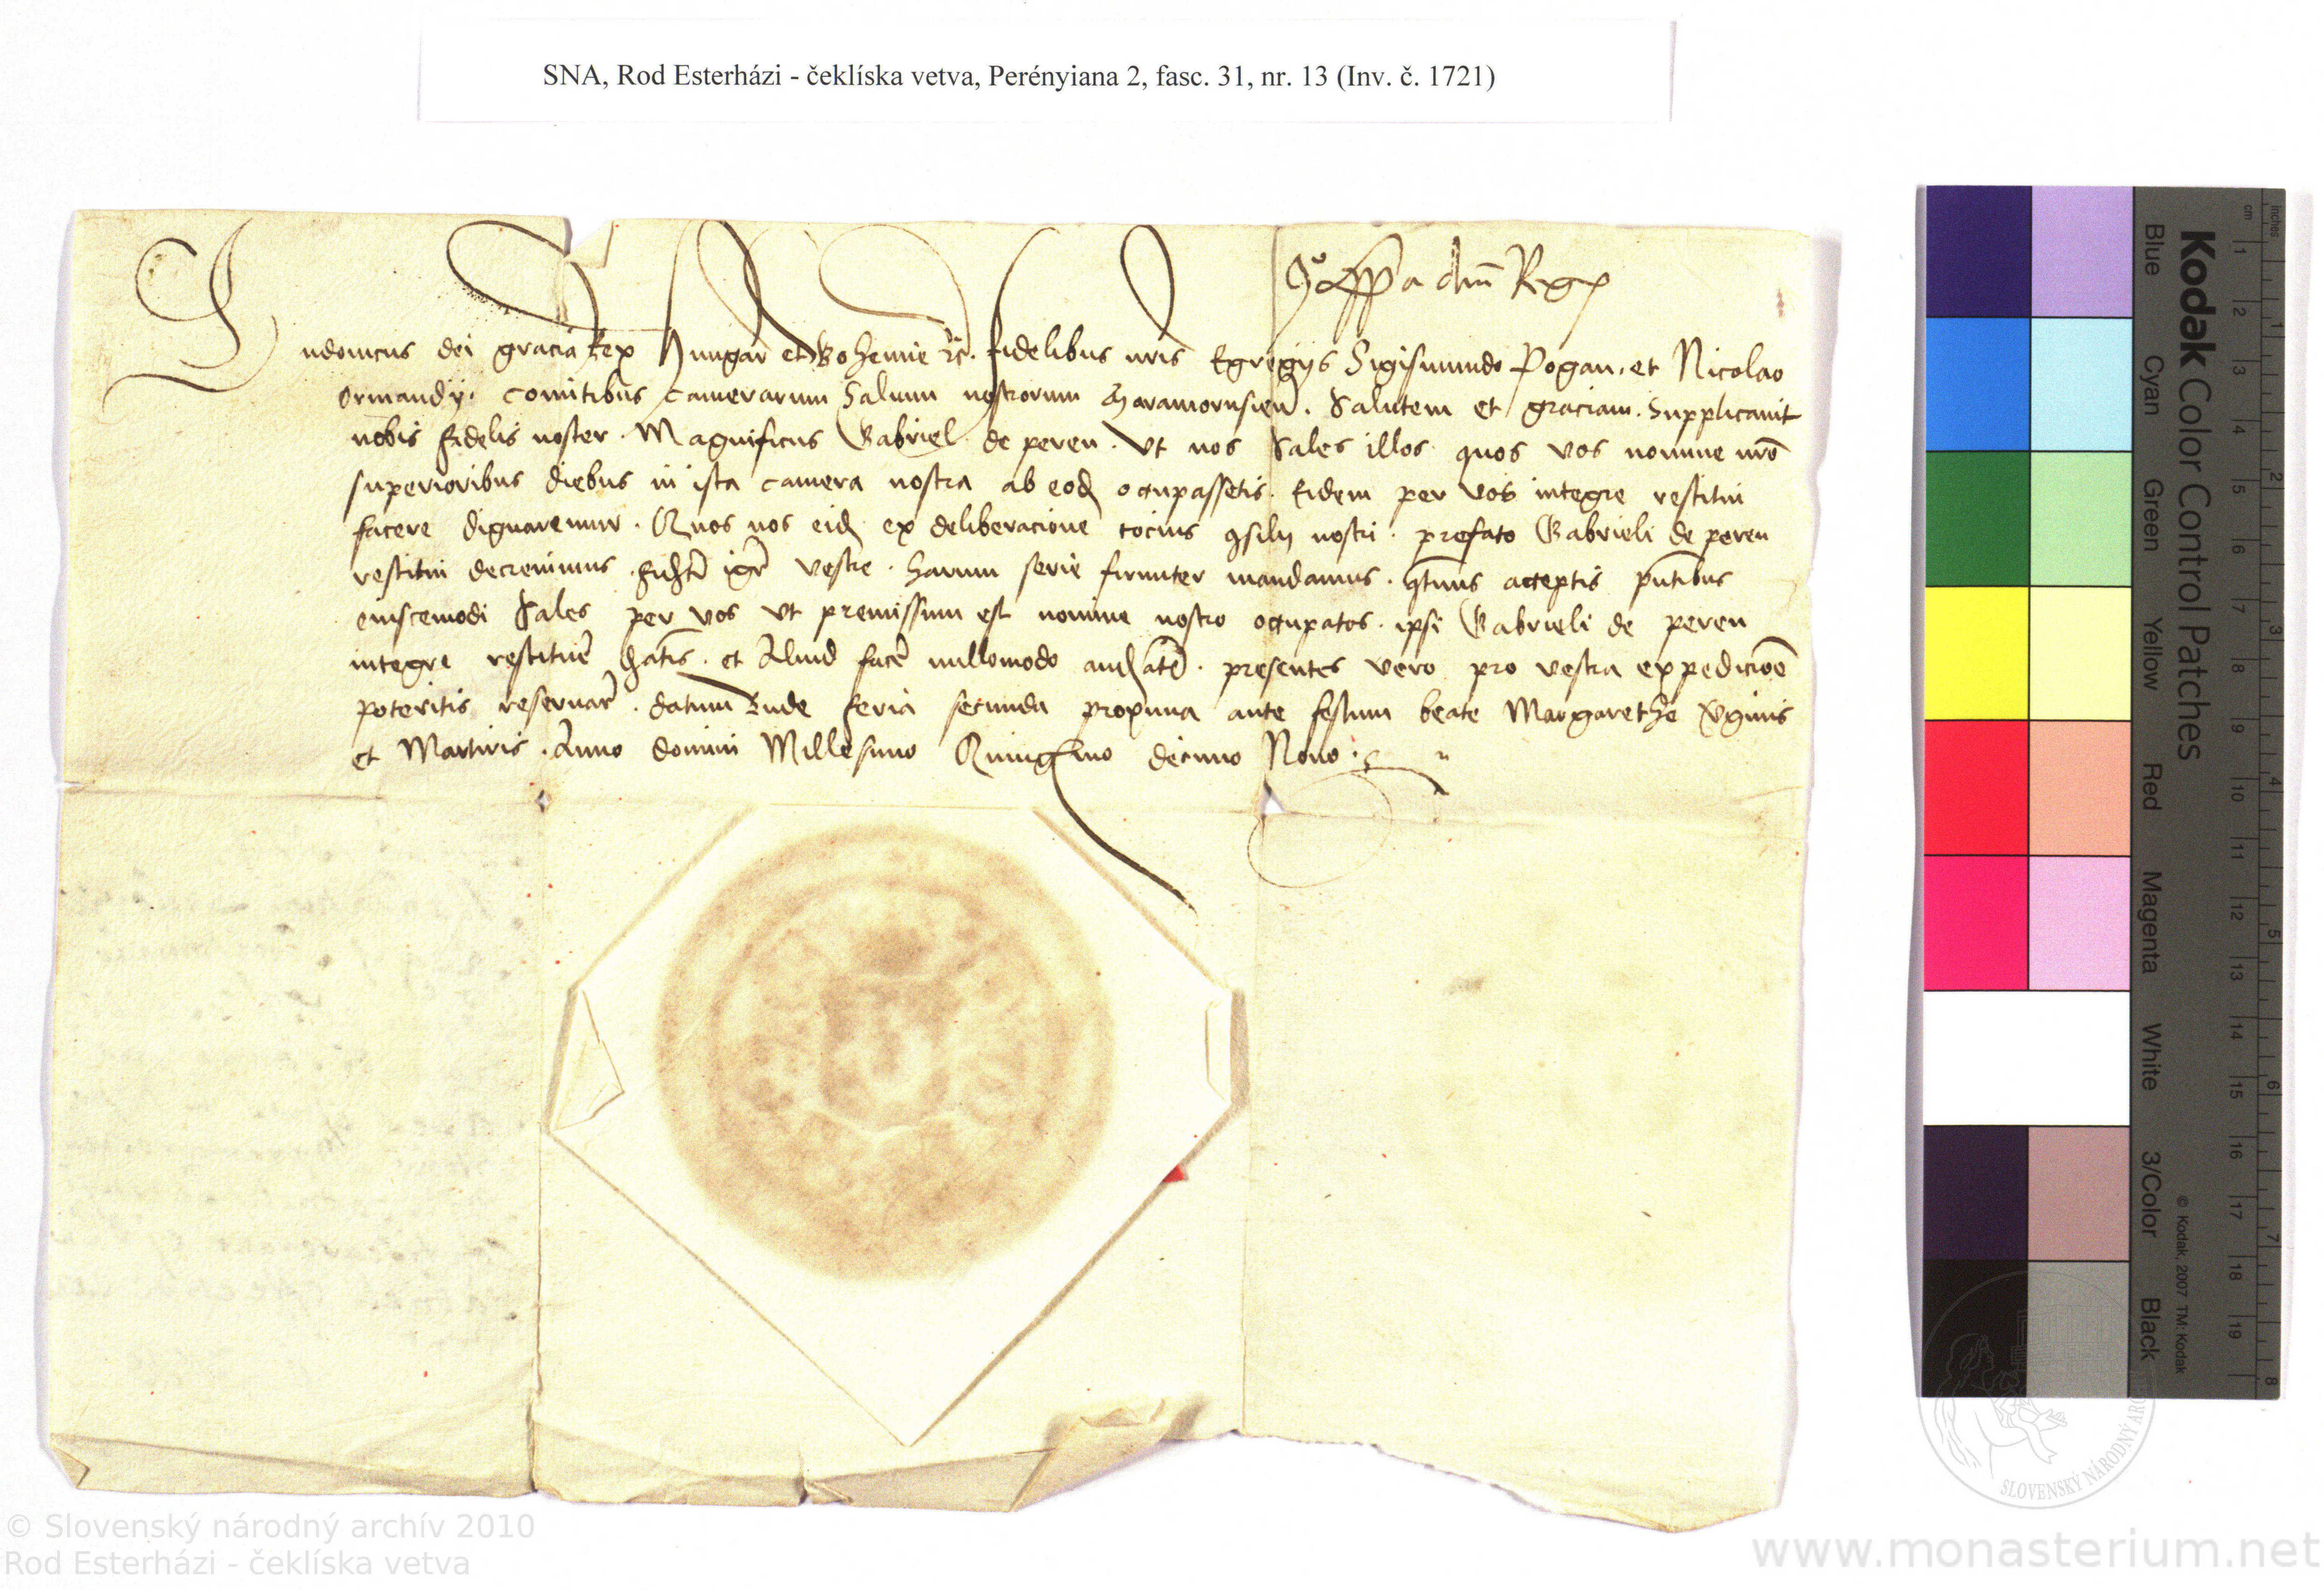 SNA, Rod Esterházi - čeklíska vetva, Perényiana 2, fasc. 31, nr. 13 (Inv. č. 1721)
dnī Reg
Ludouicus dei gracia Rex Hungar̄ et Bohemie ꝛc̄. fidelibus nr̄is Egregijs Sigismundo Pogan, et Nicolao
ormandij. comitibus camerarum Salium nostrorum Maramorusien̄. Salutem et graciam. Supplicauit
nobis fidelis noster. Magnificus Gabriel de peren. Vt nos Sales illos quos vos nomine nr̄o
superioribus diebus in ista camera nostra ab eod occupassetis. Eidem per vos integre restitui
facere dignaremur. Quos nos eid ex deliberacione tocius ꝯsilij nostri. prefato Gabrieli de peren
restitui decreuimus. fidltī igr̄ vestre. harum serie firmiter mandamus. qt̄nus acceptis pn̄tibus
eiuscemodi Sales per vos vt premissum est nomine nostro occupatos. ipsi Gabrieli de peren
integre restituer̄ et Aliud facer̄ nullomodo presentes vero pro vestra expedicioē
poteritis reseruar̄. datum Bude feria secunda proxima ante festum beate Margarethe v̄ginis
et Martiris. Anno domini Millesimo Quingmo decimo Nono.
Kodak Color Control Patches
Blue Cyan Green Yellow Red Magenta White 3/Color Black
© Kodak, 2007 TM: Kodak
inches
cm
1 2 3 4 5 6 7 8 9 10 11 12 13 14 15 16 17 18 19
1 2 3 4 5 6 7 8
SLOVENSKÝ NÁRODNÝ ARC
© Slovenský národný archív 2010
Rod Esterházi - čeklíska vetva
www.monasterium.net